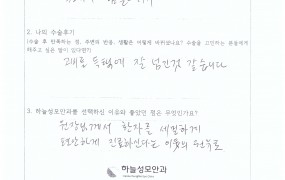 2. 나의 수술후기
(수술 후 만족하는 점, 주변의 반응, 생활은 어떻게 바뀌었나요? 수술을 고민하는 분들에게
해주고 싶은 말이 있다면?)
잘 넘긴것 같습니다
3. 하늘성모안과를 선택하신 이유와 좋았던 점은 무엇인가요?
원장님께서 환자를 세밀하게
편안하게 진료하신다는 이웃의 권유로
하늘성모안과